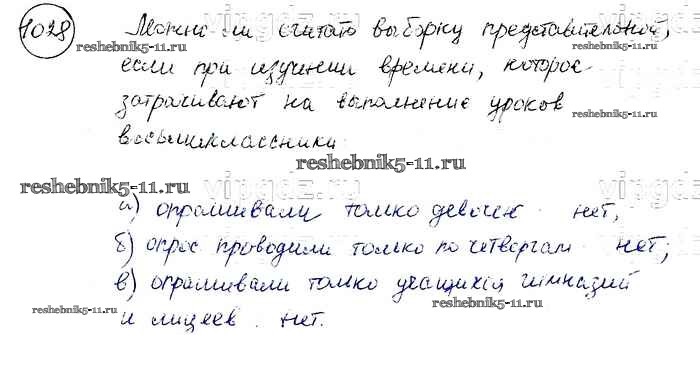 1028 Можно ли считать выборку представительной,
reshebnik5-11.ru
если при изучении времени, которое
reshebnik5-11.ru
затрачивают на выполнение уроков
восьмиклассники
reshebnik5-11.ru
reshebnik5-11.ru
vipgdz.ru
а) опрашивали только девочек нет;
б) опрос проводили только по четвергам нет;
в) опрашивали только учащихся гимназий
reshebnik5-11.ru
reshebnik5-11.ru
и лицеев. нет.